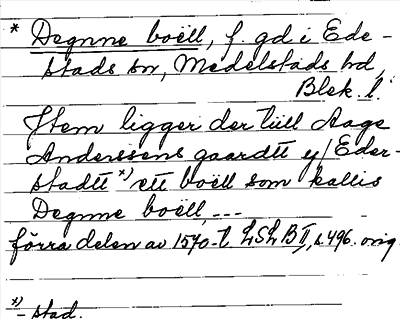 * Degnne boëll, f. gd i Ede-
stads sn, Medelstads hd,
Blek. l.
Jtem ligger der tiill Aage
Anderssens gaardtt y/ Eder-
stadtt *) ett boëll som kallis
Degnne boëll, ---
förra delen av 1570-t. LSLB II, s. 496. orig.
*) - stad.